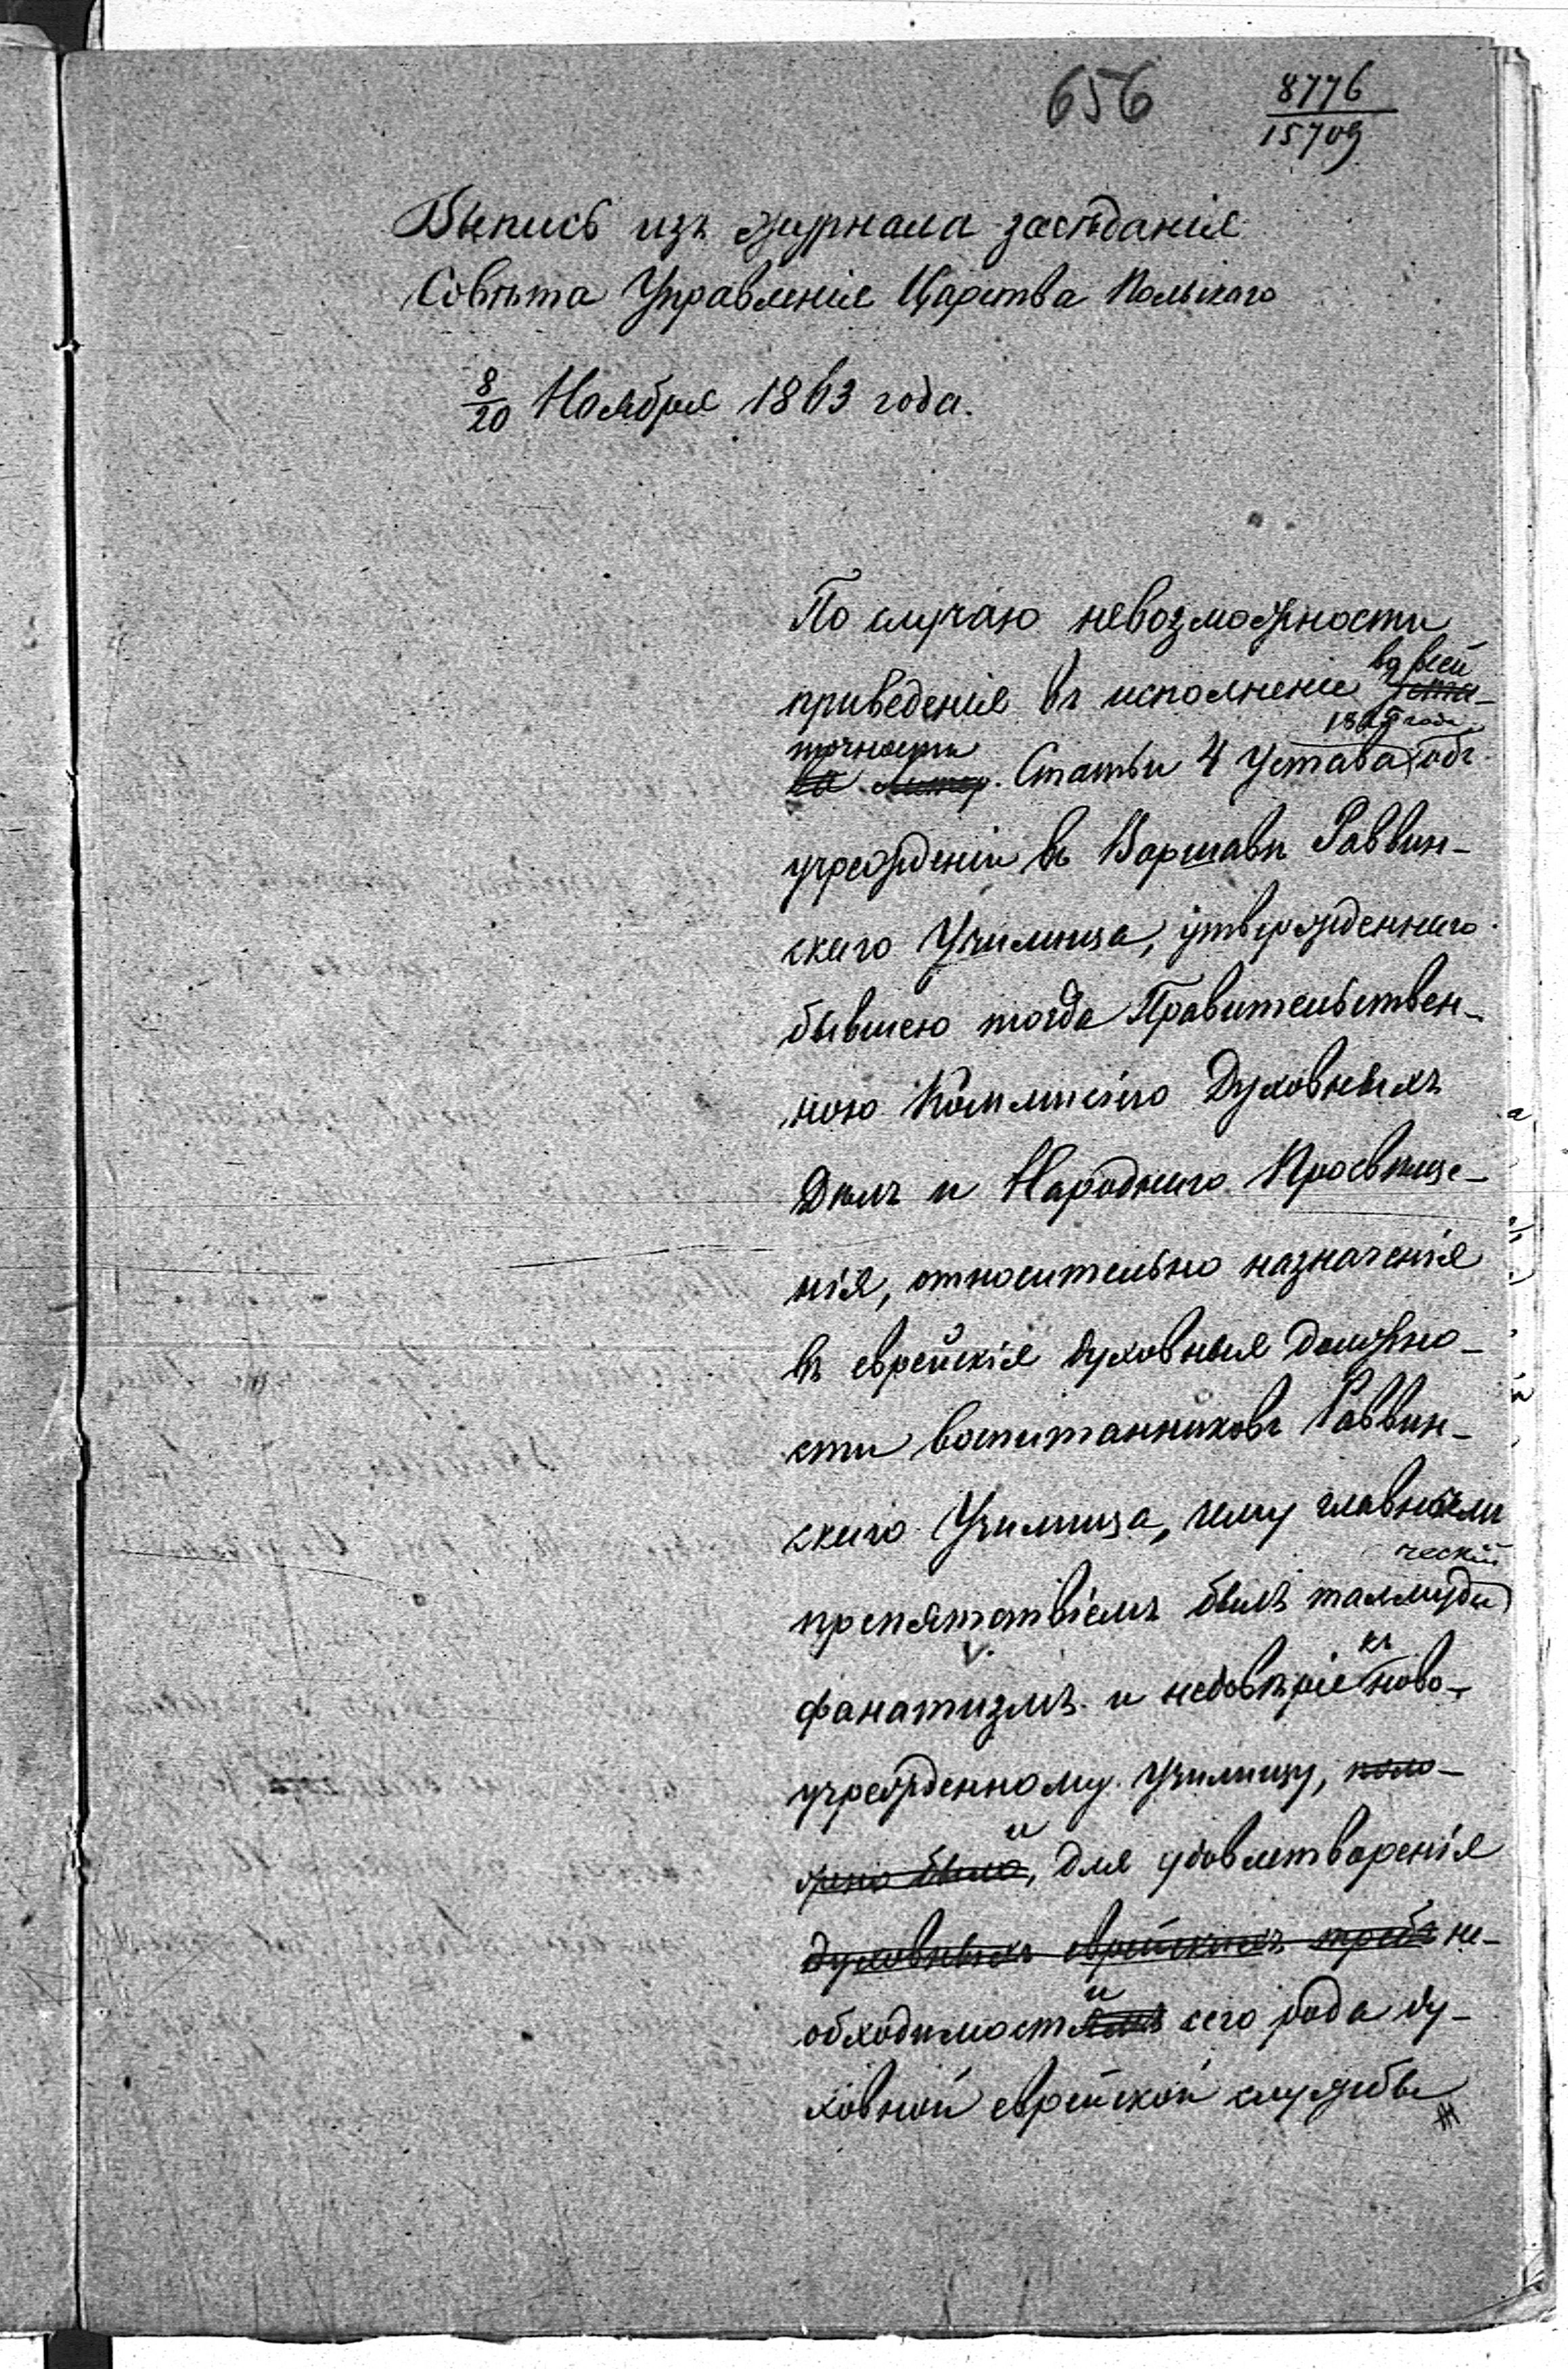 656
8776
15709
Выпись изъ журнала засѣданія
Совѣта Управленія Царства Польскаго
8/20 Ноября 1863 года.
По случаю невозможности
во всей
приведенія въ исполненіе
точности
года
Статьи 4 Устава объ
учрежденіи въ Варшавѣ Раввин-
скаго Училища, утвержденнаго
бывшею тогда Правительствен-
ною Коммисіею Духовныхъ
Дѣлъ и Народнаго Просвѣще-
нія, относительно назначенія
въ еврейскія духовныя должно-
сти воспитанниковъ Раввин-
скаго Училища, чему главнымъ
ческій
препятствіемъ былъ талмуди
фанатизмъ и недовѣріе къ ново-
учрежденному Училищу, поло-
и
жено было, для удовлетворенія
духовныхъ еврейскихъ требъ не-
и
обходимостямъ сего рода ду-
ховной еврейской службы